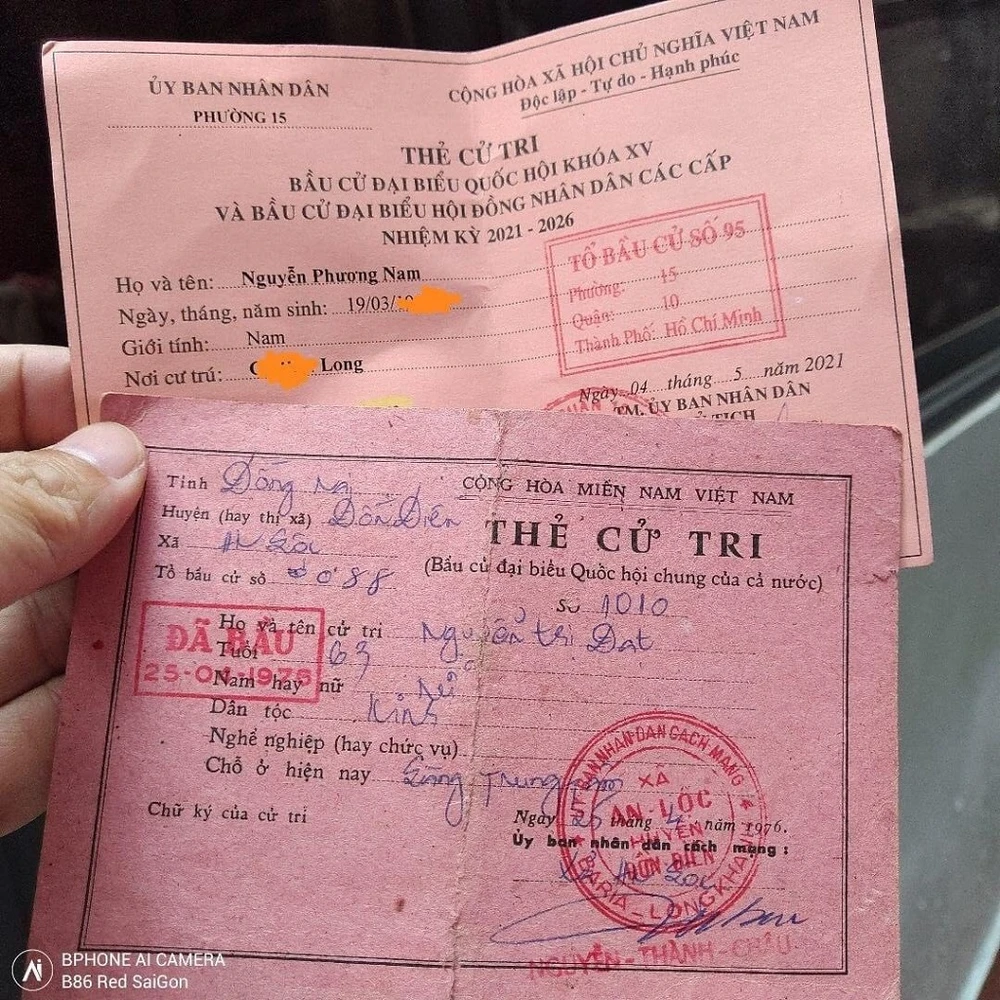 ỦY BAN NHÂN DÂN
PHƯỜNG 15
CỘNG HÒA XÃ HỘI CHỦ NGHĨA VIỆT NAM
Độc lập - Tự do - Hạnh phúc
THẺ CỬ TRI
BẦU CỬ ĐẠI BIỂU QUỐC HỘI KHÓA XV
VÀ BẦU CỬ ĐẠI BIỂU HỘI ĐỒNG NHÂN DÂN CÁC CẤP
NHIỆM KỲ 2021 - 2026
Họ và tên: Nguyễn Phương Nam
Ngày, tháng, năm sinh: 19/03/
Giới tính: Nam
Nơi cư trú: Long
TỔ BẦU CỬ SỐ 95
Phường: 15
Quận: 10
Thành Phố: Hồ Chí Minh
Ngày 04 tháng 5 năm 2021
TM. ỦY BAN NHÂN DÂN
Tỉnh Đồng Nai
Huyện (hay thị xã) Đồn Điền
Xã An Lộc
Tổ bầu cử số 088
CỘNG HÒA MIỀN NAM VIỆT NAM
THẺ CỬ TRI
(Bầu cử đại biểu Quốc hội chung của cả nước)
Số 1010
Họ và tên cử tri Nguyễn Đạt
Tuổi 63
Nam hay nữ Nữ
Dân tộc Kinh
Nghề nghiệp (hay chức vụ)
Chỗ ở hiện nay Trung
ĐÃ BẦU
25-04-1976
Chữ ký của cử tri
Ngày 25 tháng 4 năm 1976.
Ủy ban nhân dân cách mạng:
An Lộc
ỦY BAN NHÂN DÂN CÁCH MẠNG
XÃ
AN-LỘC
HUYỆN
ĐỒN ĐIỀN
BARIA-LONGKHANH
NGUYỄN-THÀNH-CHÂU
BPHONE AI CAMERA
B86 Red SaiGon